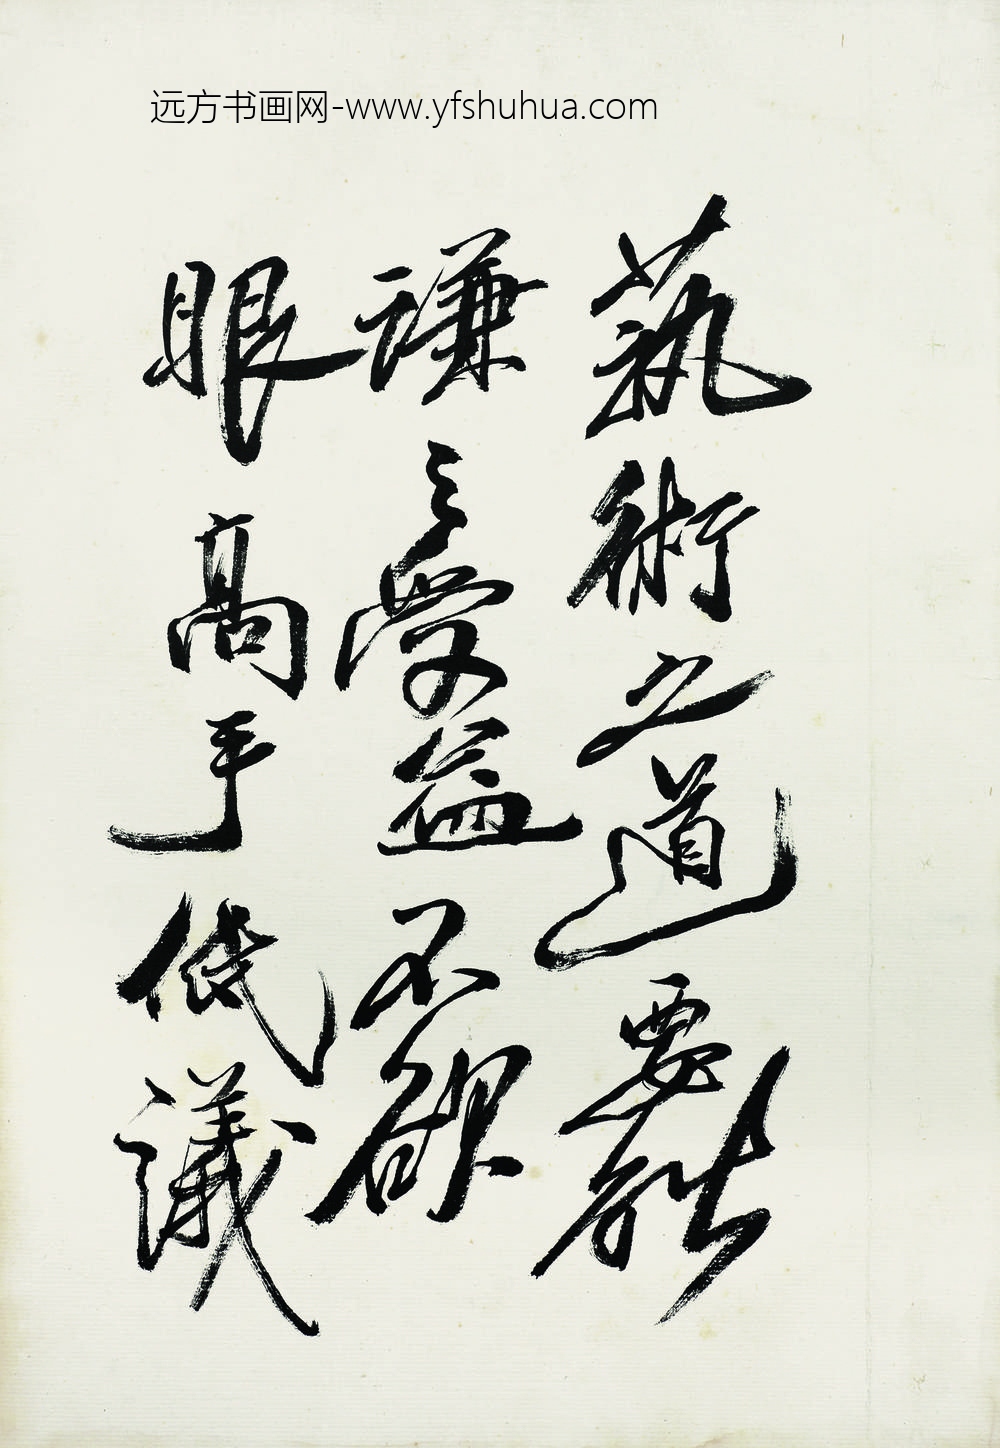 远方书画网-www.yfshuhua.com
藝術之道要能
謙之受益不欲
眼高手低議